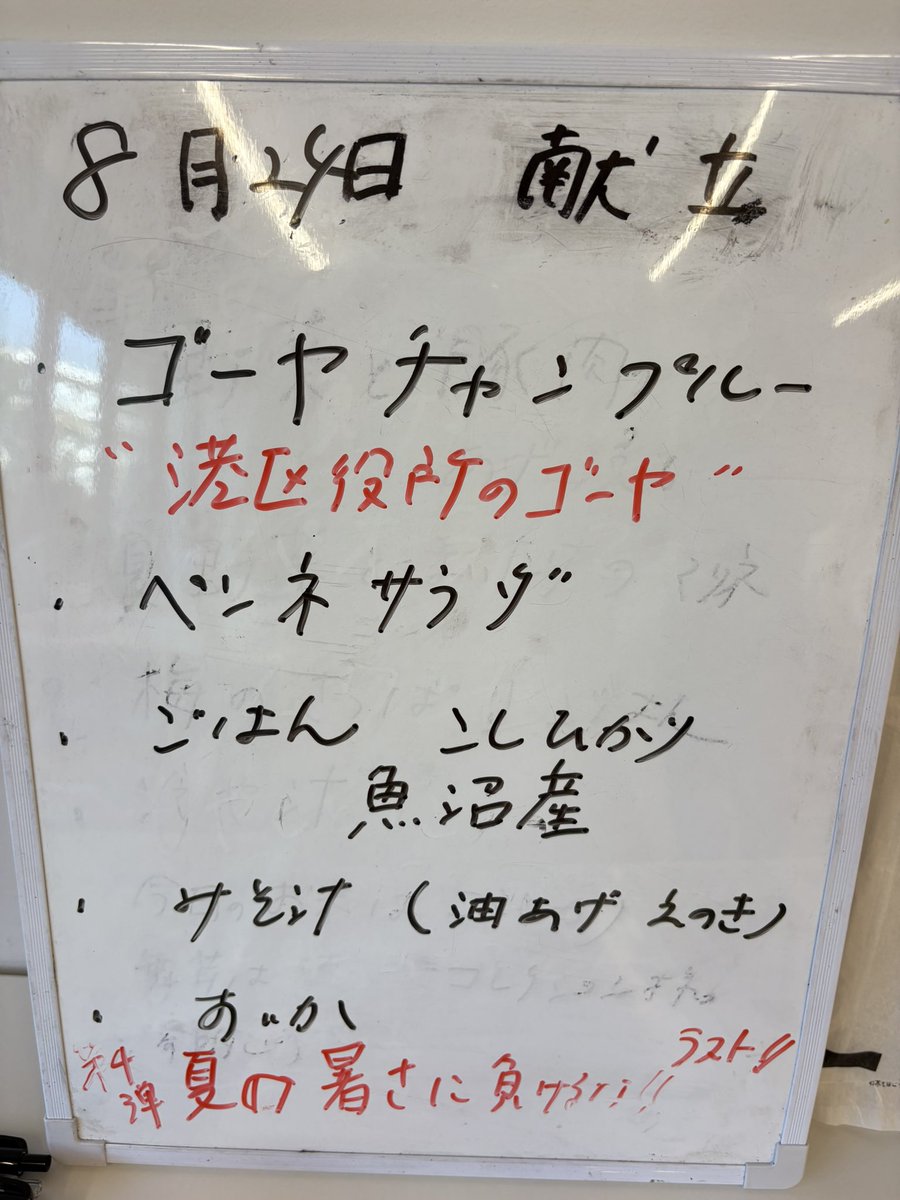 8月29日 献立
・ゴーヤチャンプルー
"港区役所のゴーヤ"
・ペンネサラダ
・ごはん こしひかり
魚沼産
・みそ汁(油あげ えのき)
・すいか
第4弾 夏の暑さに負けるな!! ラスト!!